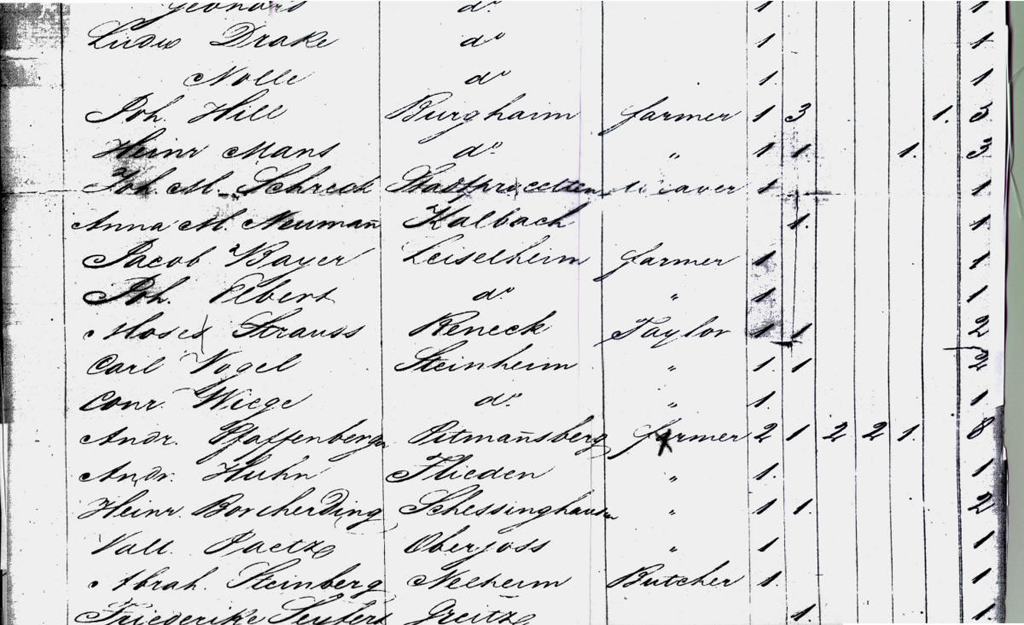 Leonard do 1 1
Ludw Drake do 1 1
Nolle do 1 1
Joh. Hill Burghaim farmer 1 3 1. 5
Heinr Mans do " 1 1. 1. 3
Joh. M. Schreck Stadtprocetten weaver 1 1
Anna M. Neuman̄ Kalbach 1. 1
Jacob Bayer Leiselheim farmer 1 1
Joh. Elbert do " 1 1
Moses Strauss Reneck Taylor 1 1 2
Carl Vogel Steinheim " 1. 1 2
Conr. Wiege do " 1. 1
Andr. Pfaffenberger Pitman̄sberg farmer 2 1 2 2 1. 8
Andr. Huhn Flieden " 1. 1
Heinr. Borcherding Schessinghausen " 1 1. 2
Vall. Paetze Oberjoss " 1 1
Abrah. Steinberg Neeheim Butcher 1. 1
Friederike Seyfert Greitz 1. 1.